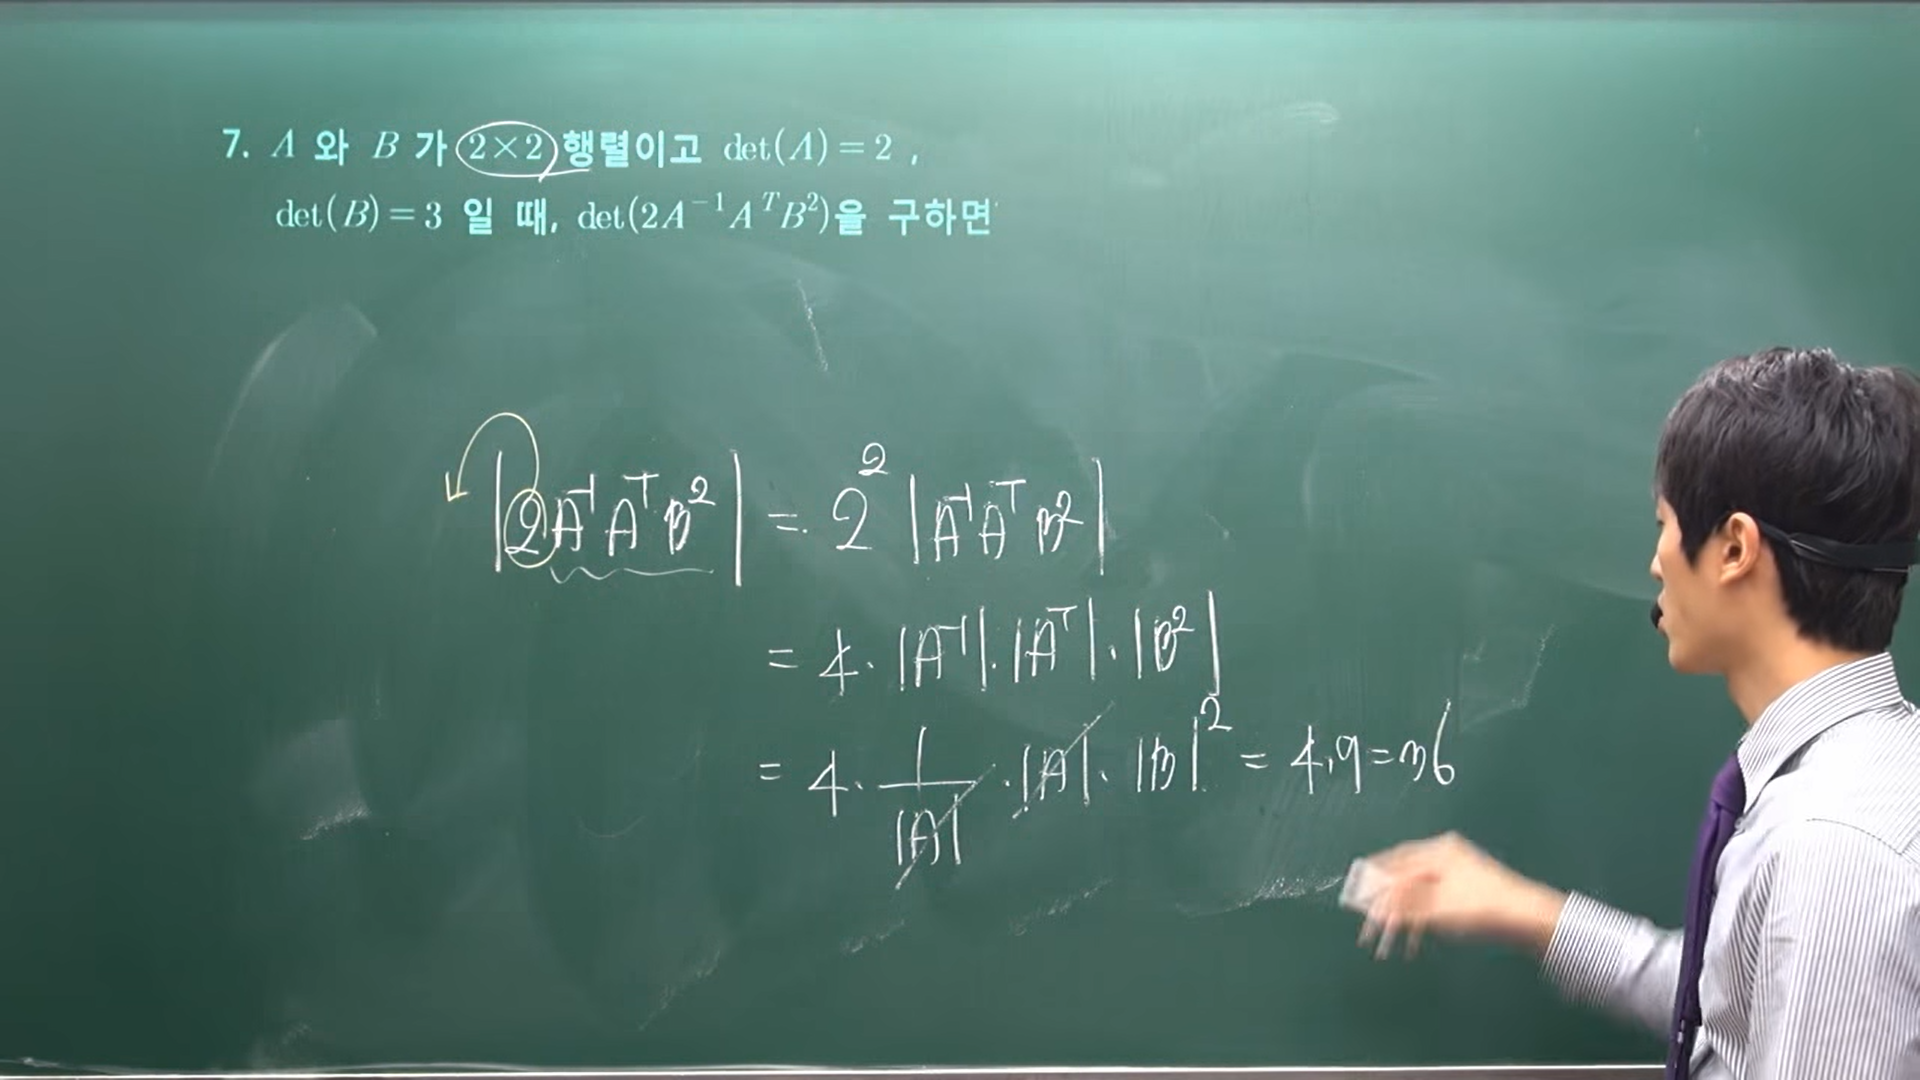 7. A 와 B 가 2×2 행렬이고 det(A)=2 ,
det(B)=3 일 때, det(2A⁻¹AᵀB²)을 구하면
|2A⁻¹AᵀB²| = 2² |A⁻¹AᵀB²|
= 4·|A⁻¹|·|Aᵀ|·|B²|
= 4· 1/|A| ·|A|·|B|² = 4·9=36